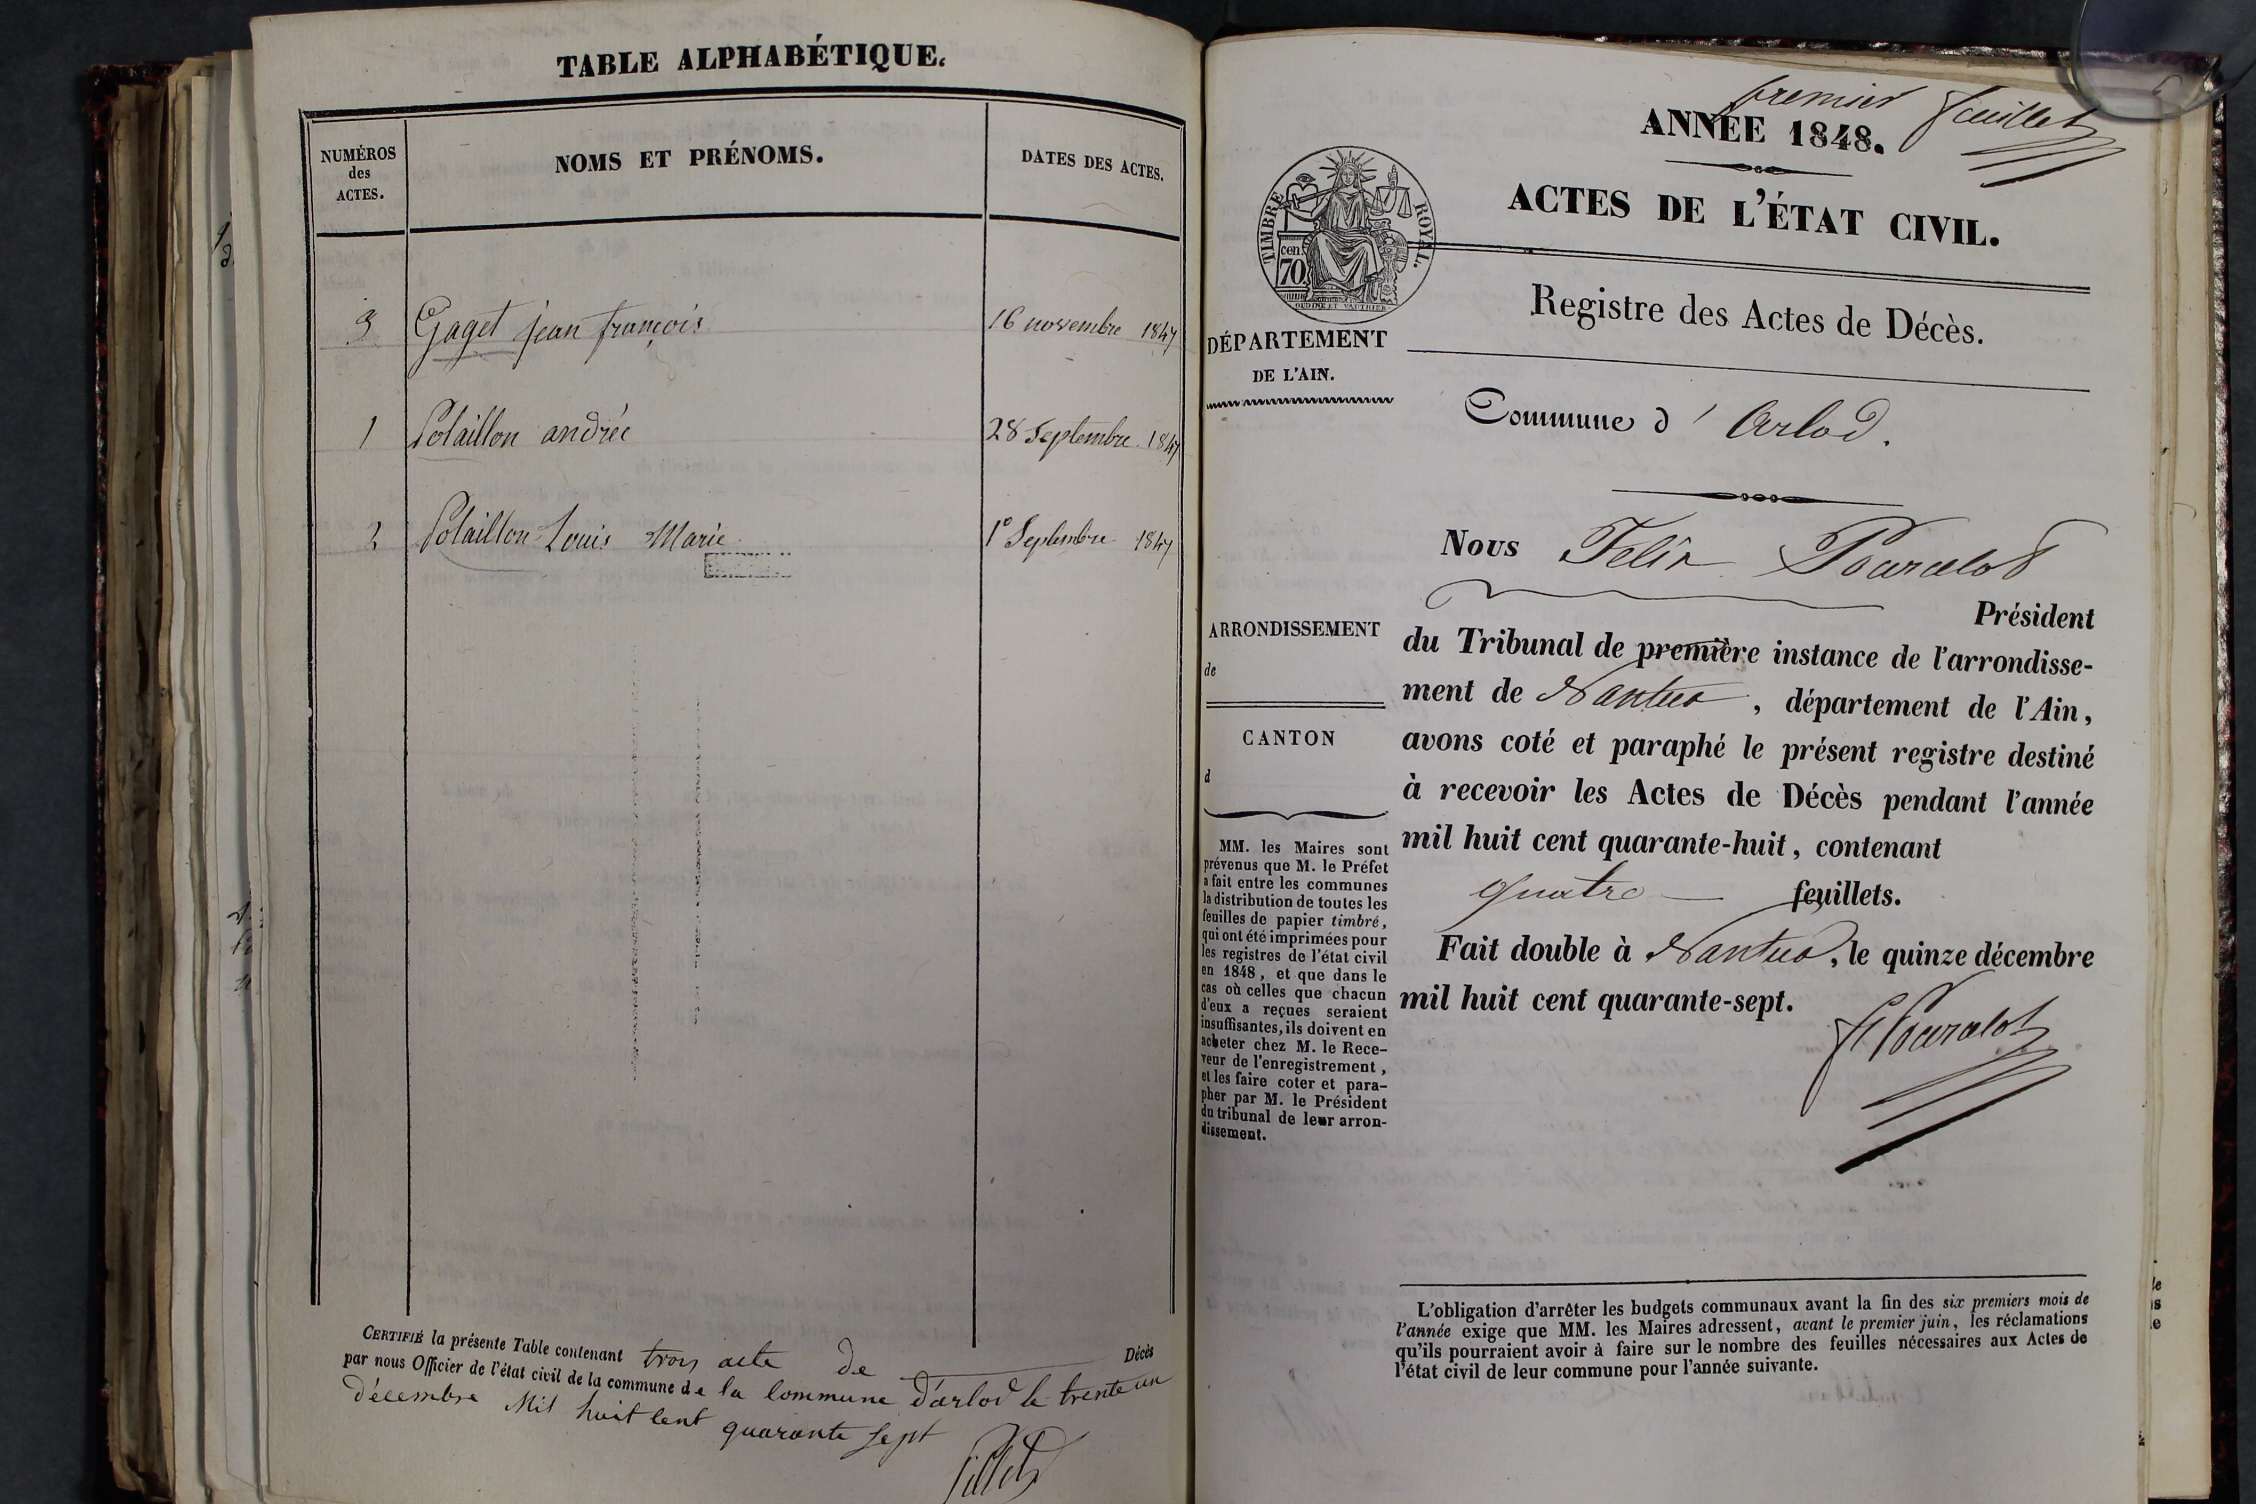 TABLE ALPHABÉTIQUE.
NUMÉROS
des
ACTES.
NOMS ET PRÉNOMS.
DATES DES ACTES.
3 Gaget jean françois 16 novembre 1847
1 Polaillon andrée 28 Septembre 1847
2 Polaillon Louis Marie 1º Septembre 1847
CERTIFIÉ la présente Table contenant trois acte de Décès
par nous Officier de l'état civil de la commune de la Commune d'arlod le trente un
décembre Mil huit Cent quarante Sept
premier feuillet
ANNÉE 1848.
ACTES DE L'ÉTAT CIVIL.
TIMBRE ROYAL.
cen.
70
OUDINÉ ET VAUTHIER
Registre des Actes de Décès.
DÉPARTEMENT
DE L'AIN.
Commune d' Arlod.
Nous Félix Pourcelot
Président
du Tribunal de première instance de l'arrondisse-
ment de Nantua, département de l'Ain,
avons coté et paraphé le présent registre destiné
à recevoir les Actes de Décès pendant l'année
mil huit cent quarante-huit, contenant
quatre feuillets.
Fait double à Nantua, le quinze décembre
mil huit cent quarante-sept.
F Pourcelot
ARRONDISSEMENT
de
CANTON
d
MM. les Maires sont
prévenus que M. le Préfet
a fait entre les communes
la distribution de toutes les
feuilles de papier timbré,
qui ont été imprimées pour
les registres de l'état civil
en 1848, et que dans le
cas où celles que chacun
d'eux a reçues seraient
insuffisantes, ils doivent en
acheter chez M. le Rece-
veur de l'enregistrement,
et les faire coter et para-
pher par M. le Président
du tribunal de leur arron-
dissement.
L'obligation d'arrêter les budgets communaux avant la fin des six premiers mois de
l'année exige que MM. les Maires adressent, avant le premier juin, les réclamations
qu'ils pourraient avoir à faire sur le nombre des feuilles nécessaires aux Actes de
l'état civil de leur commune pour l'année suivante.